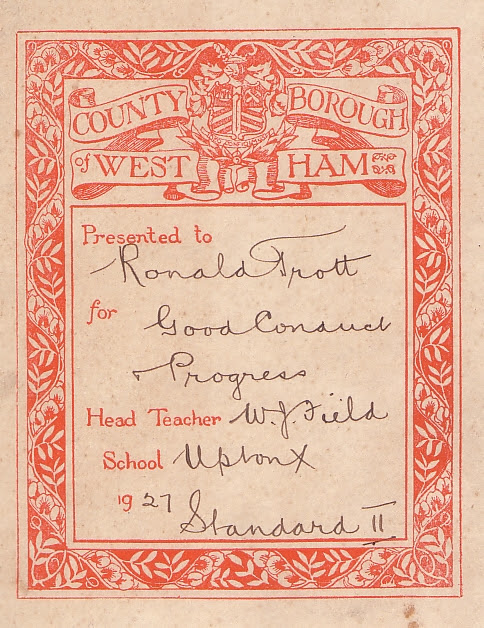 COUNTY BOROUGH
of WEST HAM
Presented to
Ronald Trott
for
Good Conduct
+ Progress
Head Teacher W. J. Field
School Upton X
1927
Standard II